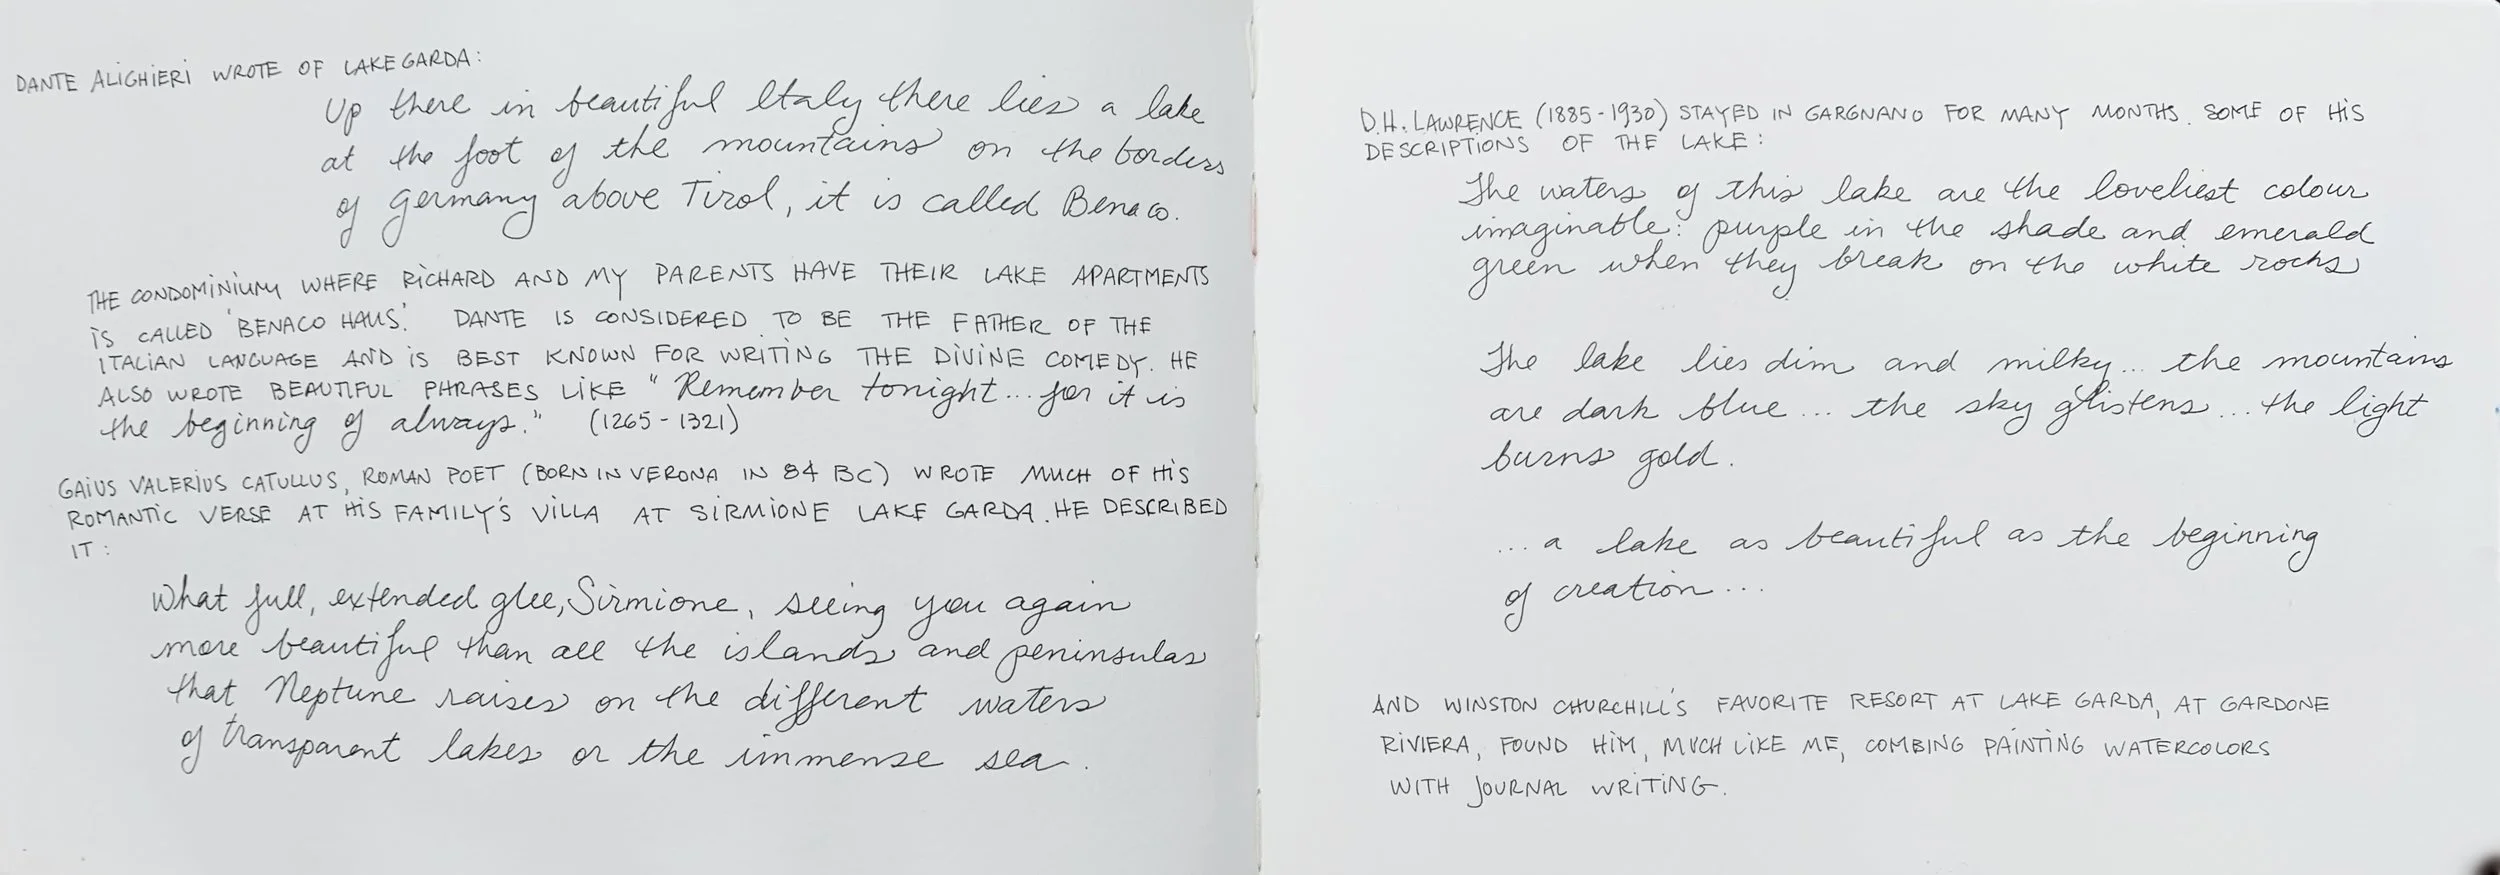 DANTE ALIGHIERI WROTE OF LAKE GARDA:
Up there in beautiful Italy there lies a lake
at the foot of the mountains on the borders
of Germany above Tirol, it is called Benaco.
THE CONDOMINIUM WHERE RICHARD AND MY PARENTS HAVE THEIR LAKE APARTMENTS
IS CALLED 'BENACO HAUS.' DANTE IS CONSIDERED TO BE THE FATHER OF THE
ITALIAN LANGUAGE AND IS BEST KNOWN FOR WRITING THE DIVINE COMEDY. HE
ALSO WROTE BEAUTIFUL PHRASES LIKE "Remember tonight... for it is
the beginning of always." (1265-1321)
GAIUS VALERIUS CATULLUS, ROMAN POET (BORN IN VERONA IN 84 BC) WROTE MUCH OF HIS
ROMANTIC VERSE AT HIS FAMILY'S VILLA AT SIRMIONE LAKE GARDA. HE DESCRIBED
IT:
What full, extended glee, Sirmione, seeing you again
more beautiful than all the islands and peninsulas
that Neptune raises on the different waters
of transparent lakes or the immense sea.
D.H. LAWRENCE (1885-1930) STAYED IN GARGNANO FOR MANY MONTHS. SOME OF HIS
DESCRIPTIONS OF THE LAKE:
The waters of this lake are the loveliest colour
imaginable: purple in the shade and emerald
green when they break on the white rocks
The lake lies dim and milky... the mountains
are dark blue... the sky glistens... the light
burns gold.
...a lake as beautiful as the beginning
of creation...
AND WINSTON CHURCHILL'S FAVORITE RESORT AT LAKE GARDA, AT GARDONE
RIVIERA, FOUND HIM, MUCH LIKE ME, COMBING PAINTING WATERCOLORS
WITH JOURNAL WRITING.